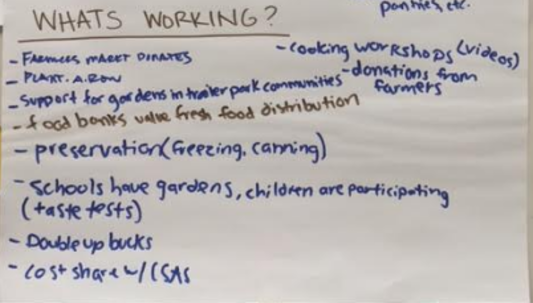 pantries, etc.
WHATS WORKING?
- FARMERS MARKT DONATES
- PLANT.A.ROW
- Support for gardens in trailer park communities
- food banks value fresh food distribution
- preservation (freezing, canning)
- schools have gardens, children are participating
(taste tests)
- Double up bucks
- cost share w/ CSAS
- cooking workshops (videos)
- donations from
farmers